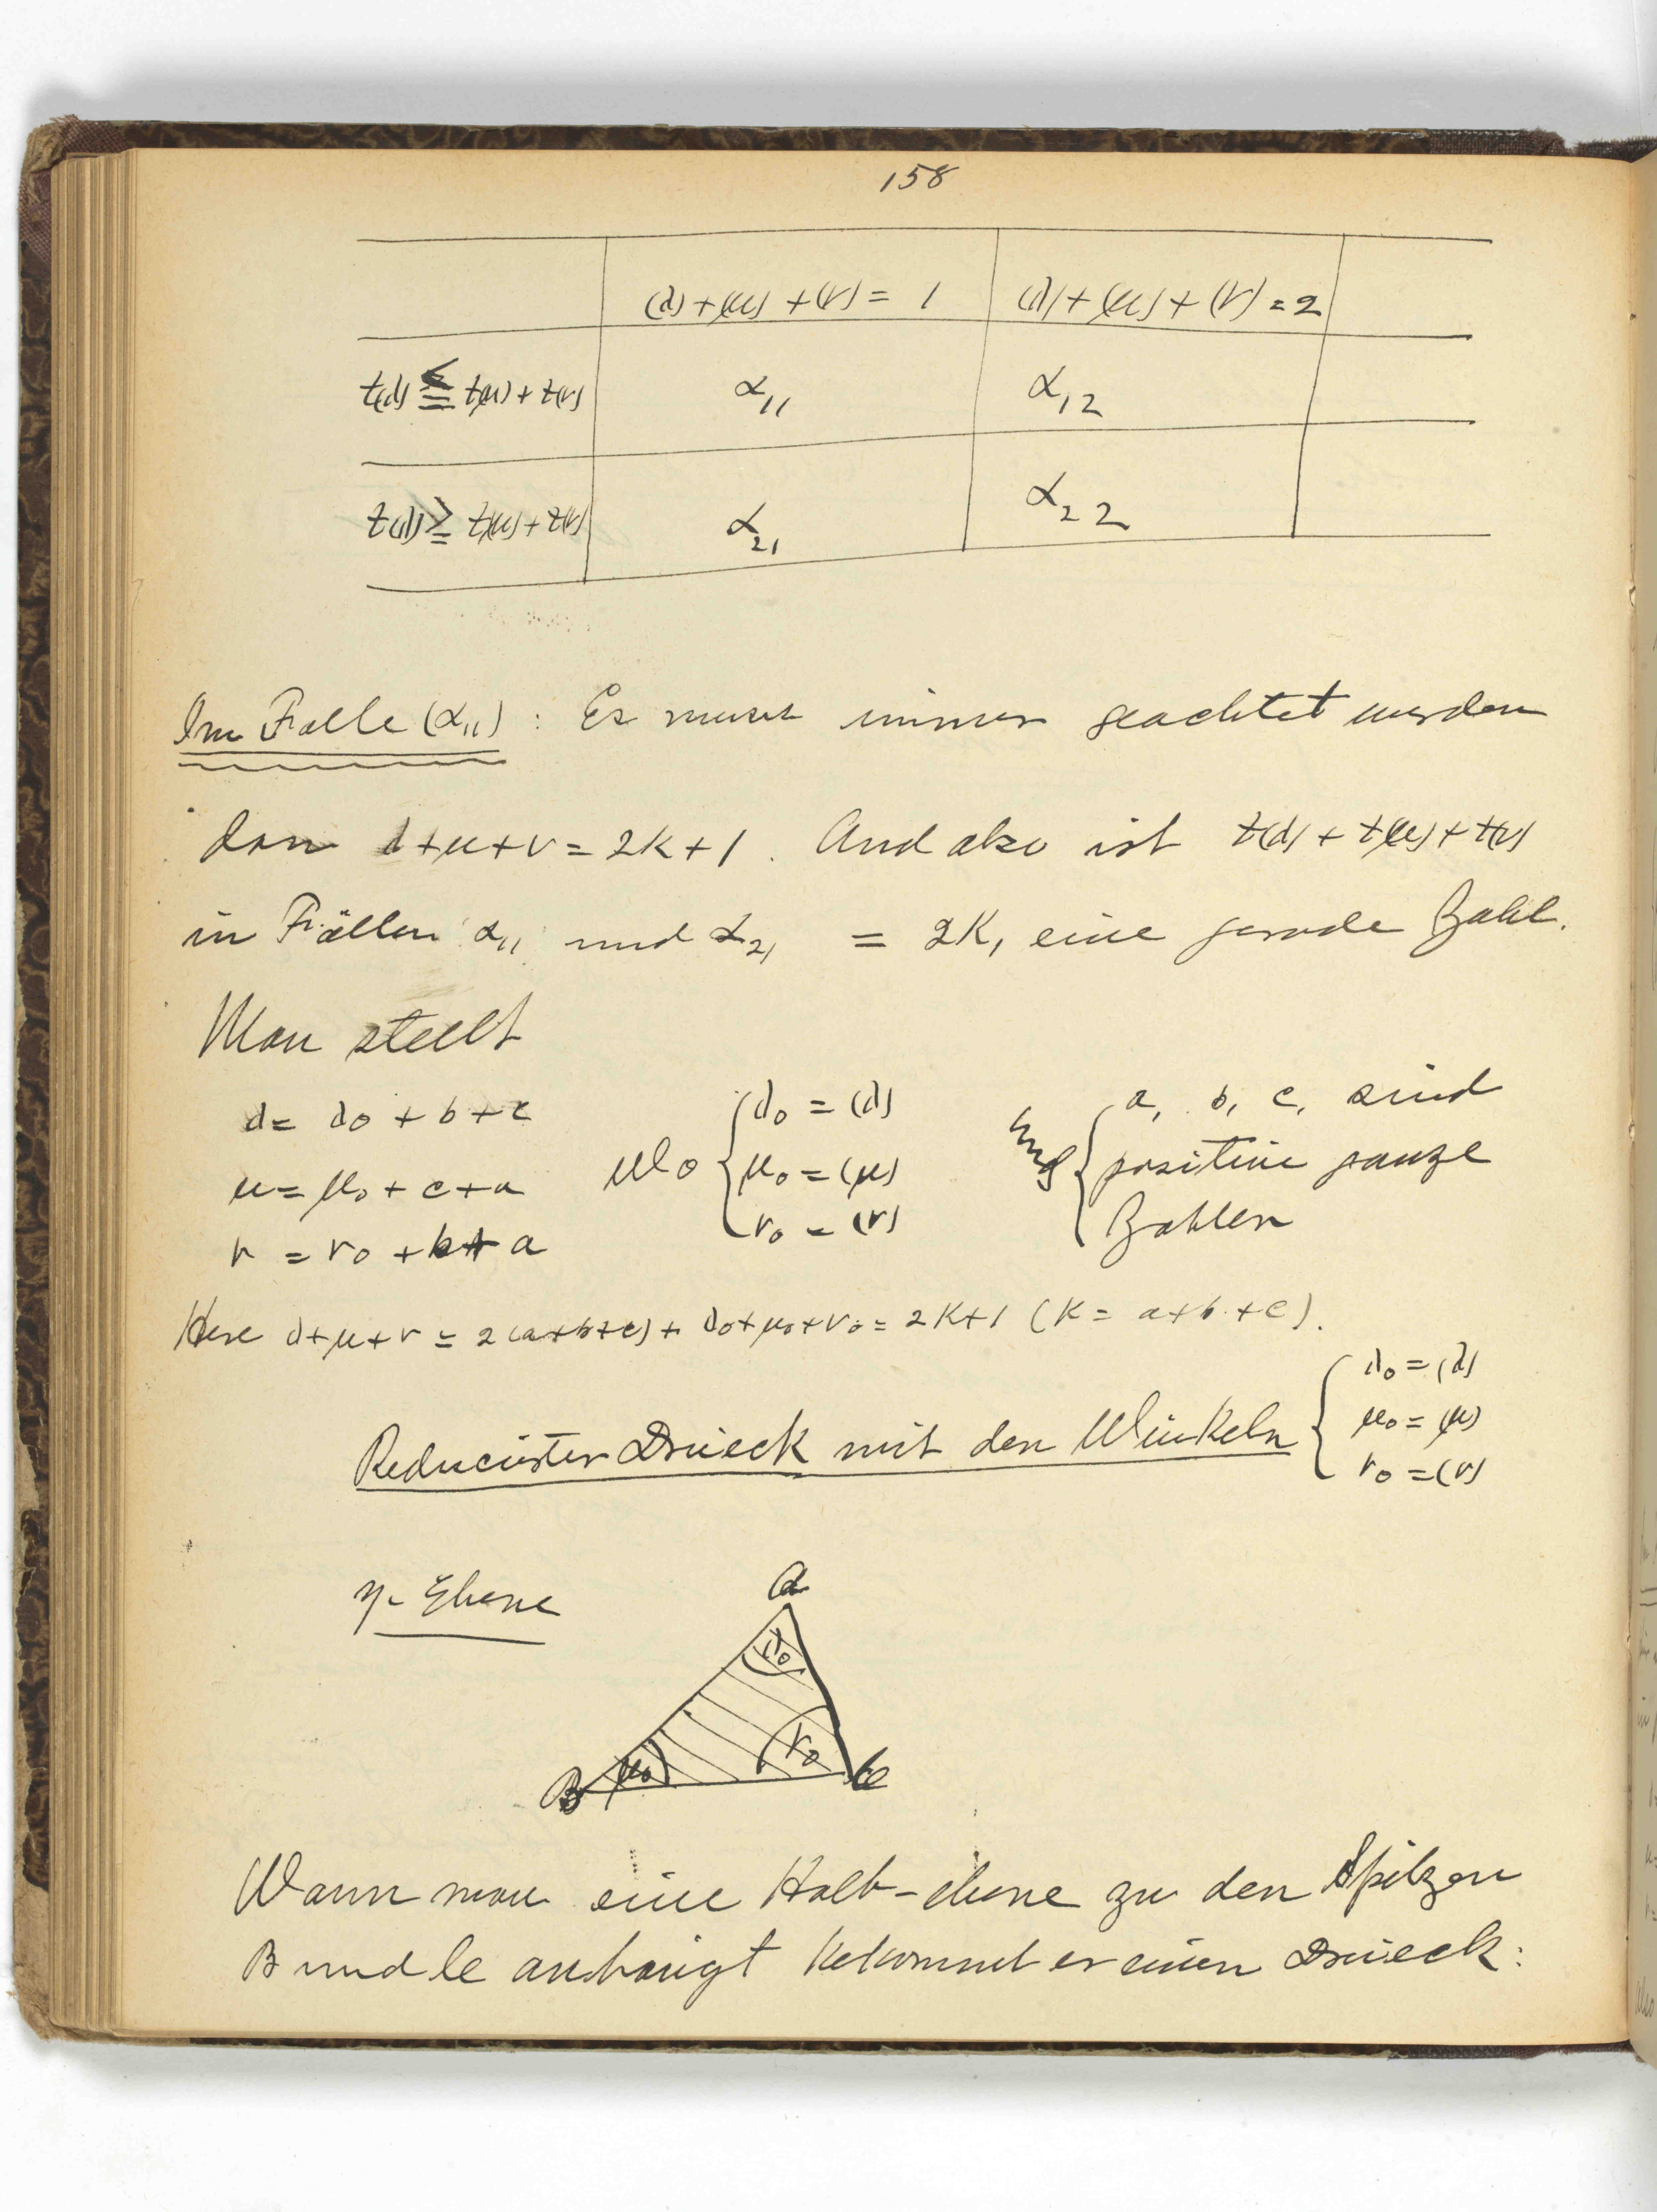 158
(λ)+(μ)+(ν) = 1 (λ)+(μ)+(ν) = 2
t(λ) ≦ t(μ) + t(ν) α₁₁ α₁₂
t(λ) ≧ t(μ) + t(ν) α₂₁ α₂₂
Im Falle (α₁₁) : Es muss immer geachtet werden
dan λ+μ+ν = 2K+1. And also ist t(λ) + t(μ) + t(ν)
in Fällen α₁₁ und α₂₁ = 2K, eine gerade Zahl.
Man stellt
λ = λ₀ + b + c
μ = μ₀ + c + a
ν = ν₀ + b + a
Wo { λ₀ = (λ)
μ₀ = (μ)
ν₀ = (ν)
und { a, b, c, sind
positive ganze
Zahlen
Here λ+μ+ν = 2(a+b+c) + λ₀+μ₀+ν₀ = 2K+1 (K = a+b+c).
Reducirter Drieck mit den Winkeln { λ₀ = (λ)
μ₀ = (μ)
ν₀ = (ν)
η-Ebene
a
λ₀
B μ₀ ν₀ C
Wann man eine Halb-ebene zu den Spitzen
B und C anhängt bekommt er einen Drieck: